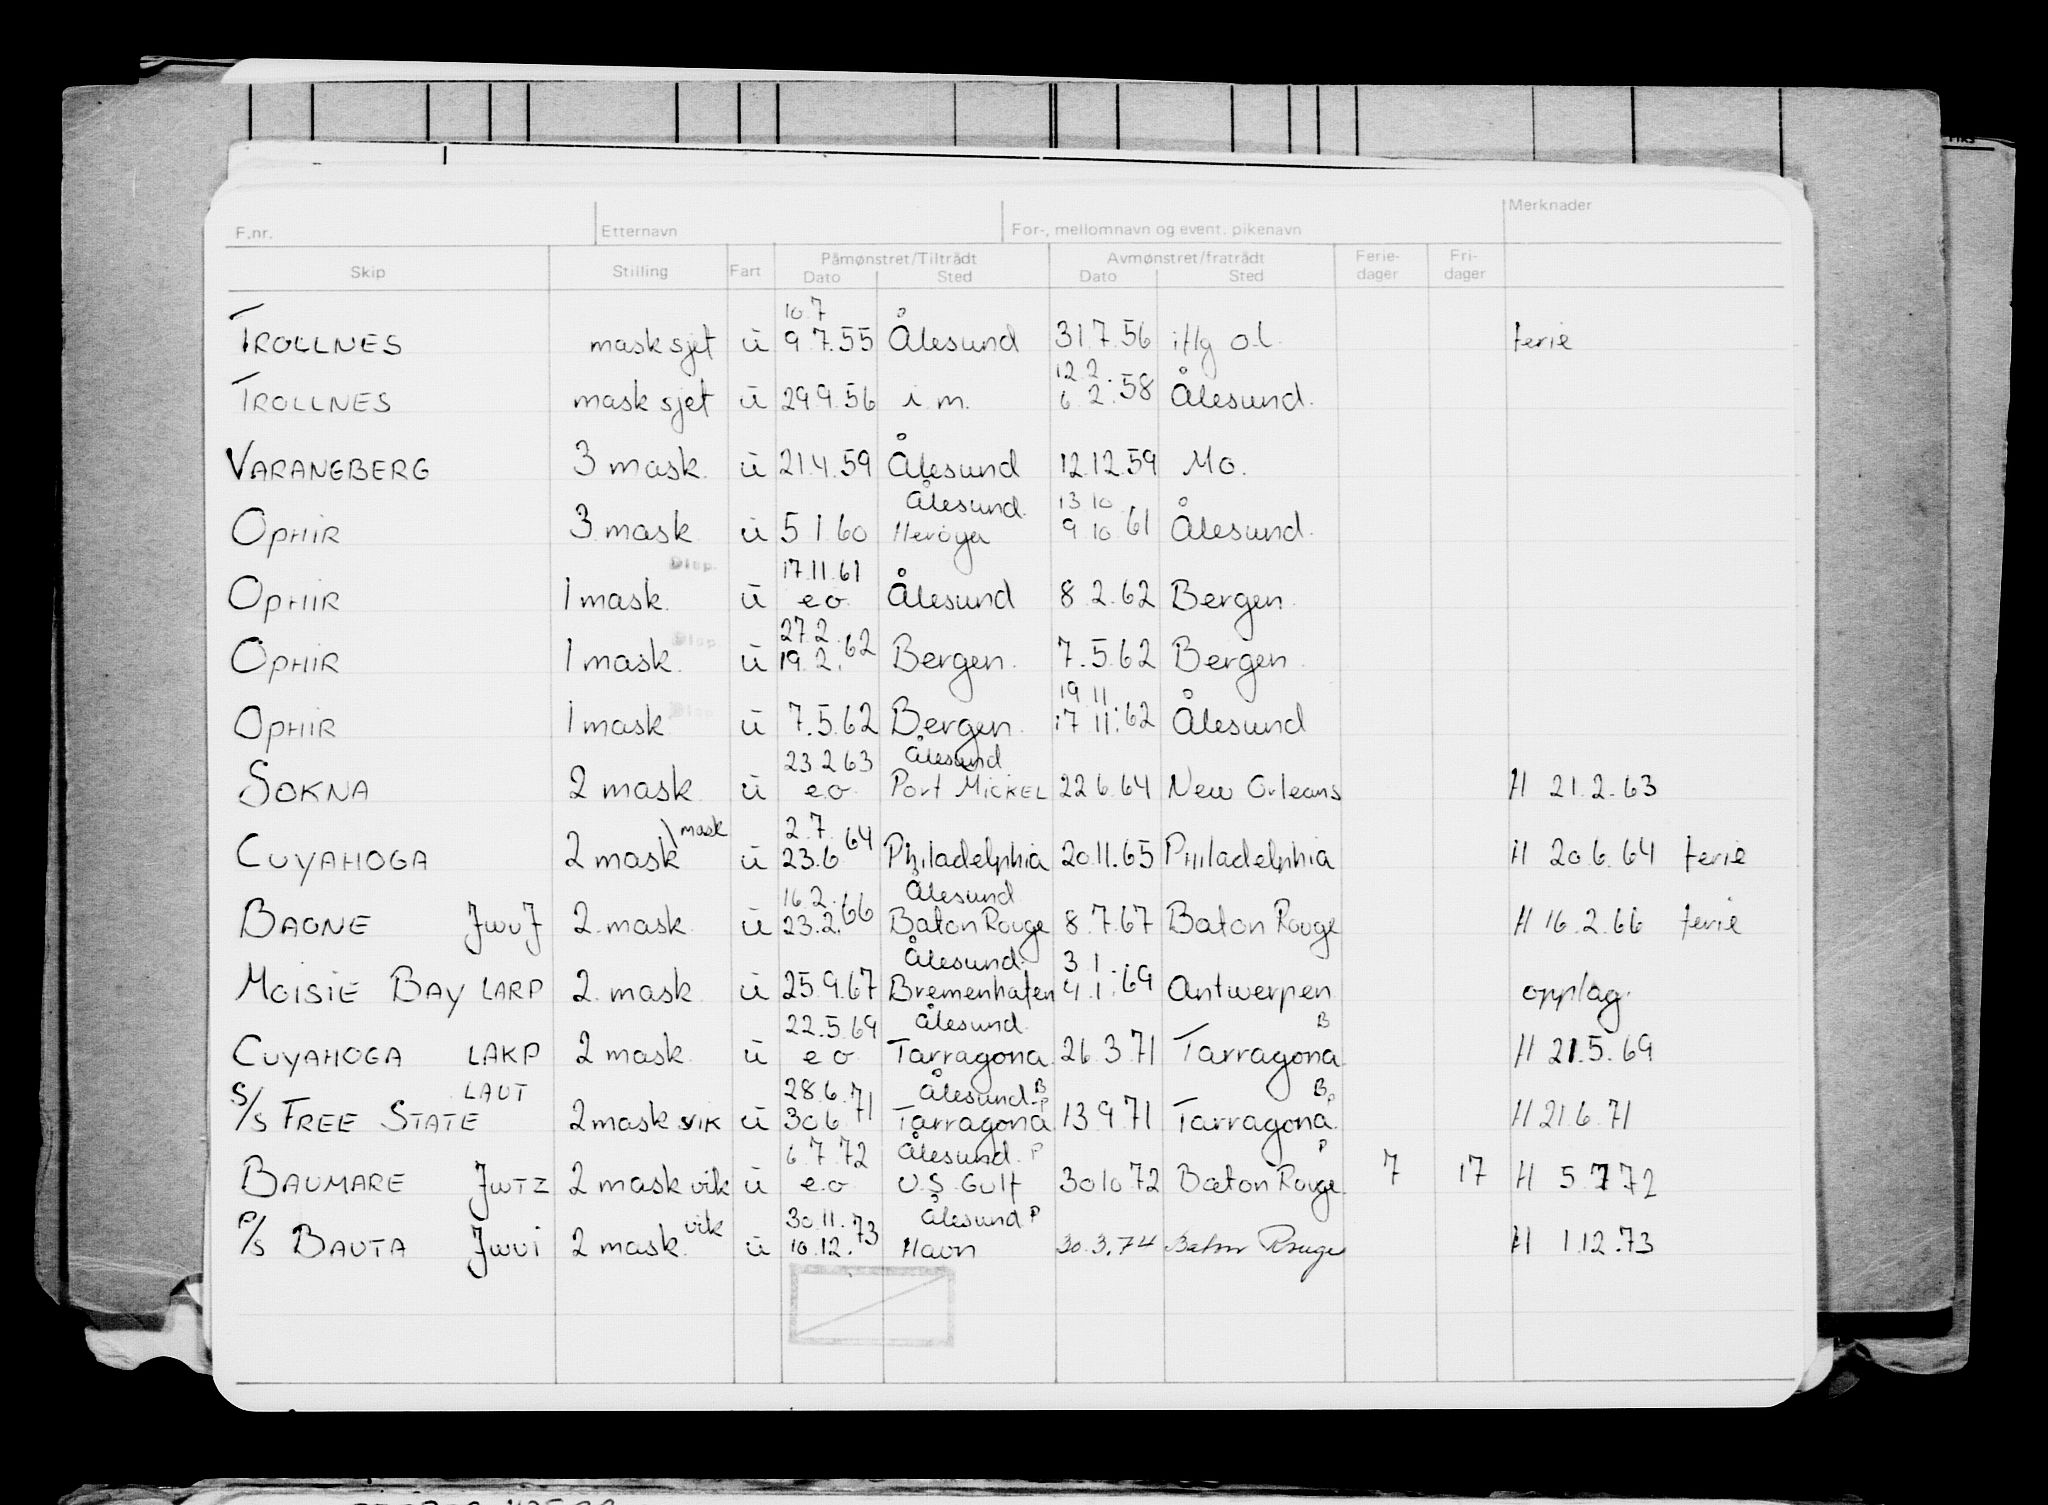 F.nr. Etternavn For-, mellomnavn og event. pikenavn Merknader
Skip Stilling Fart Påmønstret/Tiltrådt Dato Sted Avmønstret/fratrådt Dato Sted Ferie-dager Fri-dager
10.7
TROLLNES mask sjef ü 9.7.55 Ålesund 31.7.56 iflg o.l. ferie
12.2
TROLLNES mask sjef ü 29.9.56 i.m. 6.2.58 Ålesund.
VARANGBERG 3 mask. ü 21.4.59 Ålesund 12.12.59 Mo.
Ålesund. 13 10
OPHIR 3 mask ü 5 1 60 Herøya 9 10 61 Ålesund.
Disp. 17.11.61
OPHIR 1 mask. ü e.o. Ålesund 8.2.62 Bergen.
Disp. 27.2
OPHIR 1 mask. ü 19.2.62 Bergen. 7.5.62 Bergen.
Disp. 19 11
OPHIR 1 mask ü 7.5.62 Bergen. 17 11.62 Ålesund
23 2 63 Ålesund
SOKNA 2 mask. ü e.o. Port MICKEL 22 6.64 New Orleans H 21.2.63
mask 2.7.
CUYAHOGA 2 mask ü 23.6 64 Philadelphia 20.11.65 Philadelphia H 20.6.64 ferie
16.2. Ålesund
BAGNE JWVJ 2 mask. ü 23.2.66 Baton Rouge 8.7.67 Baton Rouge H 16.2.66 ferie
Ålesund. 3 1
MOISIE BAY LARP 2. mask. ü 25.9.67 Bremenhafen 4.1.69 Antwerpen opplag.
22.5.69 Ålesund. B
CUYAHOGA LAKP 2 mask. ü e o Tarragona. 26.3.71 Tarragona H 21.5.69
LAUT 28.6. Ålesund. B P B P
S/S FREE STATE 2 mask vik ü 30 6 71 Tarragona 13 9.71 Tarragona. H 21 6.71
6.7.72 Ålesund. P P
BAUMARE JWTZ 2 mask vik ü e.o U.S. Gulf 30 10 72 Baton Rouge 7 17 H 5.7 72
vik 30.11. Ålesund P
P/S BAUTA JWVI 2 mask. ü 10.12.73 Havn 30.3.74 Baton Rouge H 1.12.73